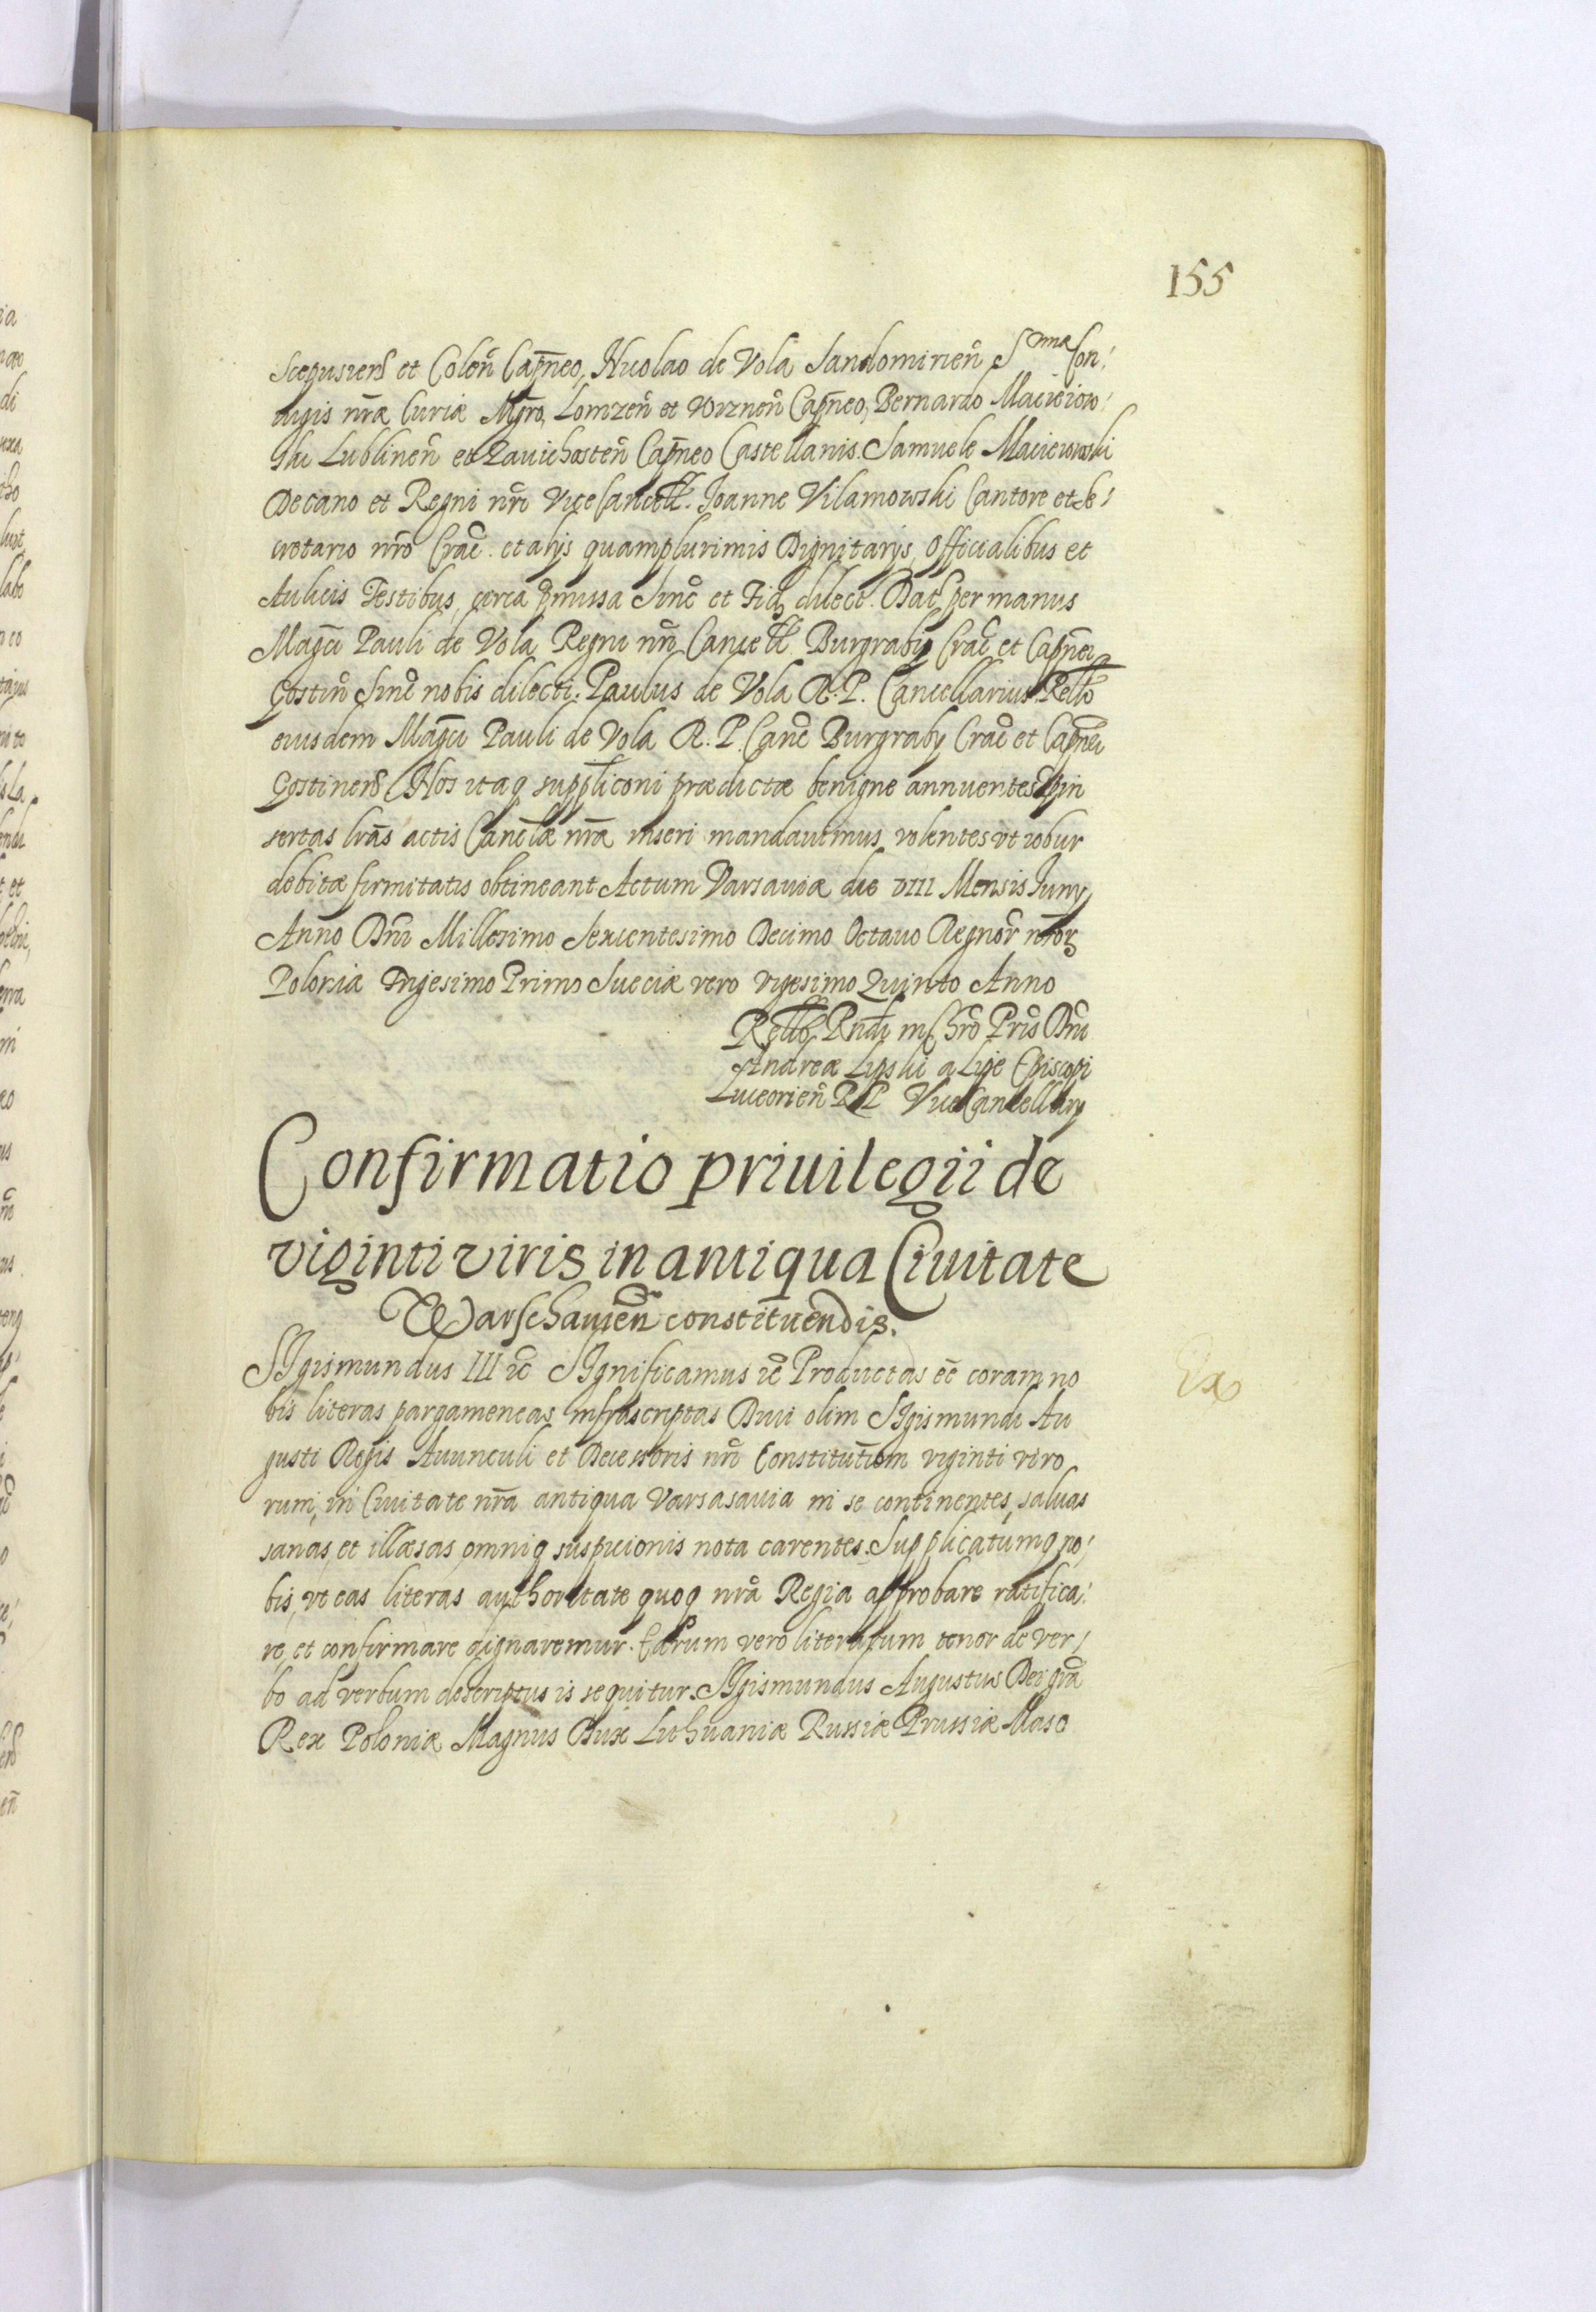 155
Scepusien̄ et Colen̄ Cap̄neo, Nicolao de Vola Sandomirien̄ Sᵐᵃᵉ Con:
iugis nr̄æ Curiæ Mgr̄o, Lomzen̄ et Wiznen̄ Cap̄neo, Bernardo Macieiow:
ski Lublinen̄ et Zauichosten̄ Cap̄neo Castellanis. Samuele Macieiowski
Decano et Regni nr̄i ViceCancell. Joanne Vilamowski Cantore et Se:
cretario nr̄o Crac̄. et alijs quamplurimis Dignitarijs, Officialibus et
Aulicis Testibus, circa p̄missa Sinc̄ et Fid. dilect. Dat̄ per manus
Magci Pauli de Vola Regni nr̄i Cancell. Burgrabij Crac̄ et Cap̄nei
Gostin̄ Sinc̄ nobis dilecti. Paulus de Vola R. P. Cancellarius. Rel̄tō
eiusdem Magci Pauli de Vola R. P. Canc̄ Burgrabij Crac̄ et Cap̄nei
Gostinen̄ Nos itaq suppliconi prædictæ benigne annuentes p̄in
sertas lrās actis Canc̄læ nr̄æ inseri mandauimus, volentes vt robur
debitæ firmitatis obtineant Actum Varsauiæ die VIII Mensis Iunij
Anno Dn̄i Millesimo Sexcentesimo Decimo Octauo Regnor̄ nr̄or
Poloniæ Trigesimo Primo Sueciæ vero vigesimo Quinto Anno
Rel̄tō Rn̄di in Chr̄o Pr̄is Dn̄i
Andreæ Lipski a Lipe Episcopi
Luceorien̄ R P ViceCancellarij
Confirmatio priuilegii de
viginti viris in antiqua Ciuitate
Warschauien̄ constituendis.
SIgismundus III ꝛc̄ SIgnificamus ꝛc̄ Productas eē coram no
bis literas pargameneas infrascriptas Diui olim SIgismundi Au
gusti Regis Auunculi et Decessoris nr̄i Constitutīom viginti viro
rum, in Ciuitate nr̄a antiqua Varsasauia in se continentes, saluas
sanas, et illæsas, omniq suspicionis nota carentes. Supplicatumq no:
bis, vt eas literas authoritate quoq nr̄a Regia approbare ratifica:
re, et confirmare dignaremur. Earum vero literarum tenor de ver:
bo ad verbum descriptus is sequitur. SIgismundus Augustus Dei gr̄a
Rex Poloniæ Magnus Dux Lithuaniæ Russiæ Prussiæ Maso
Ex